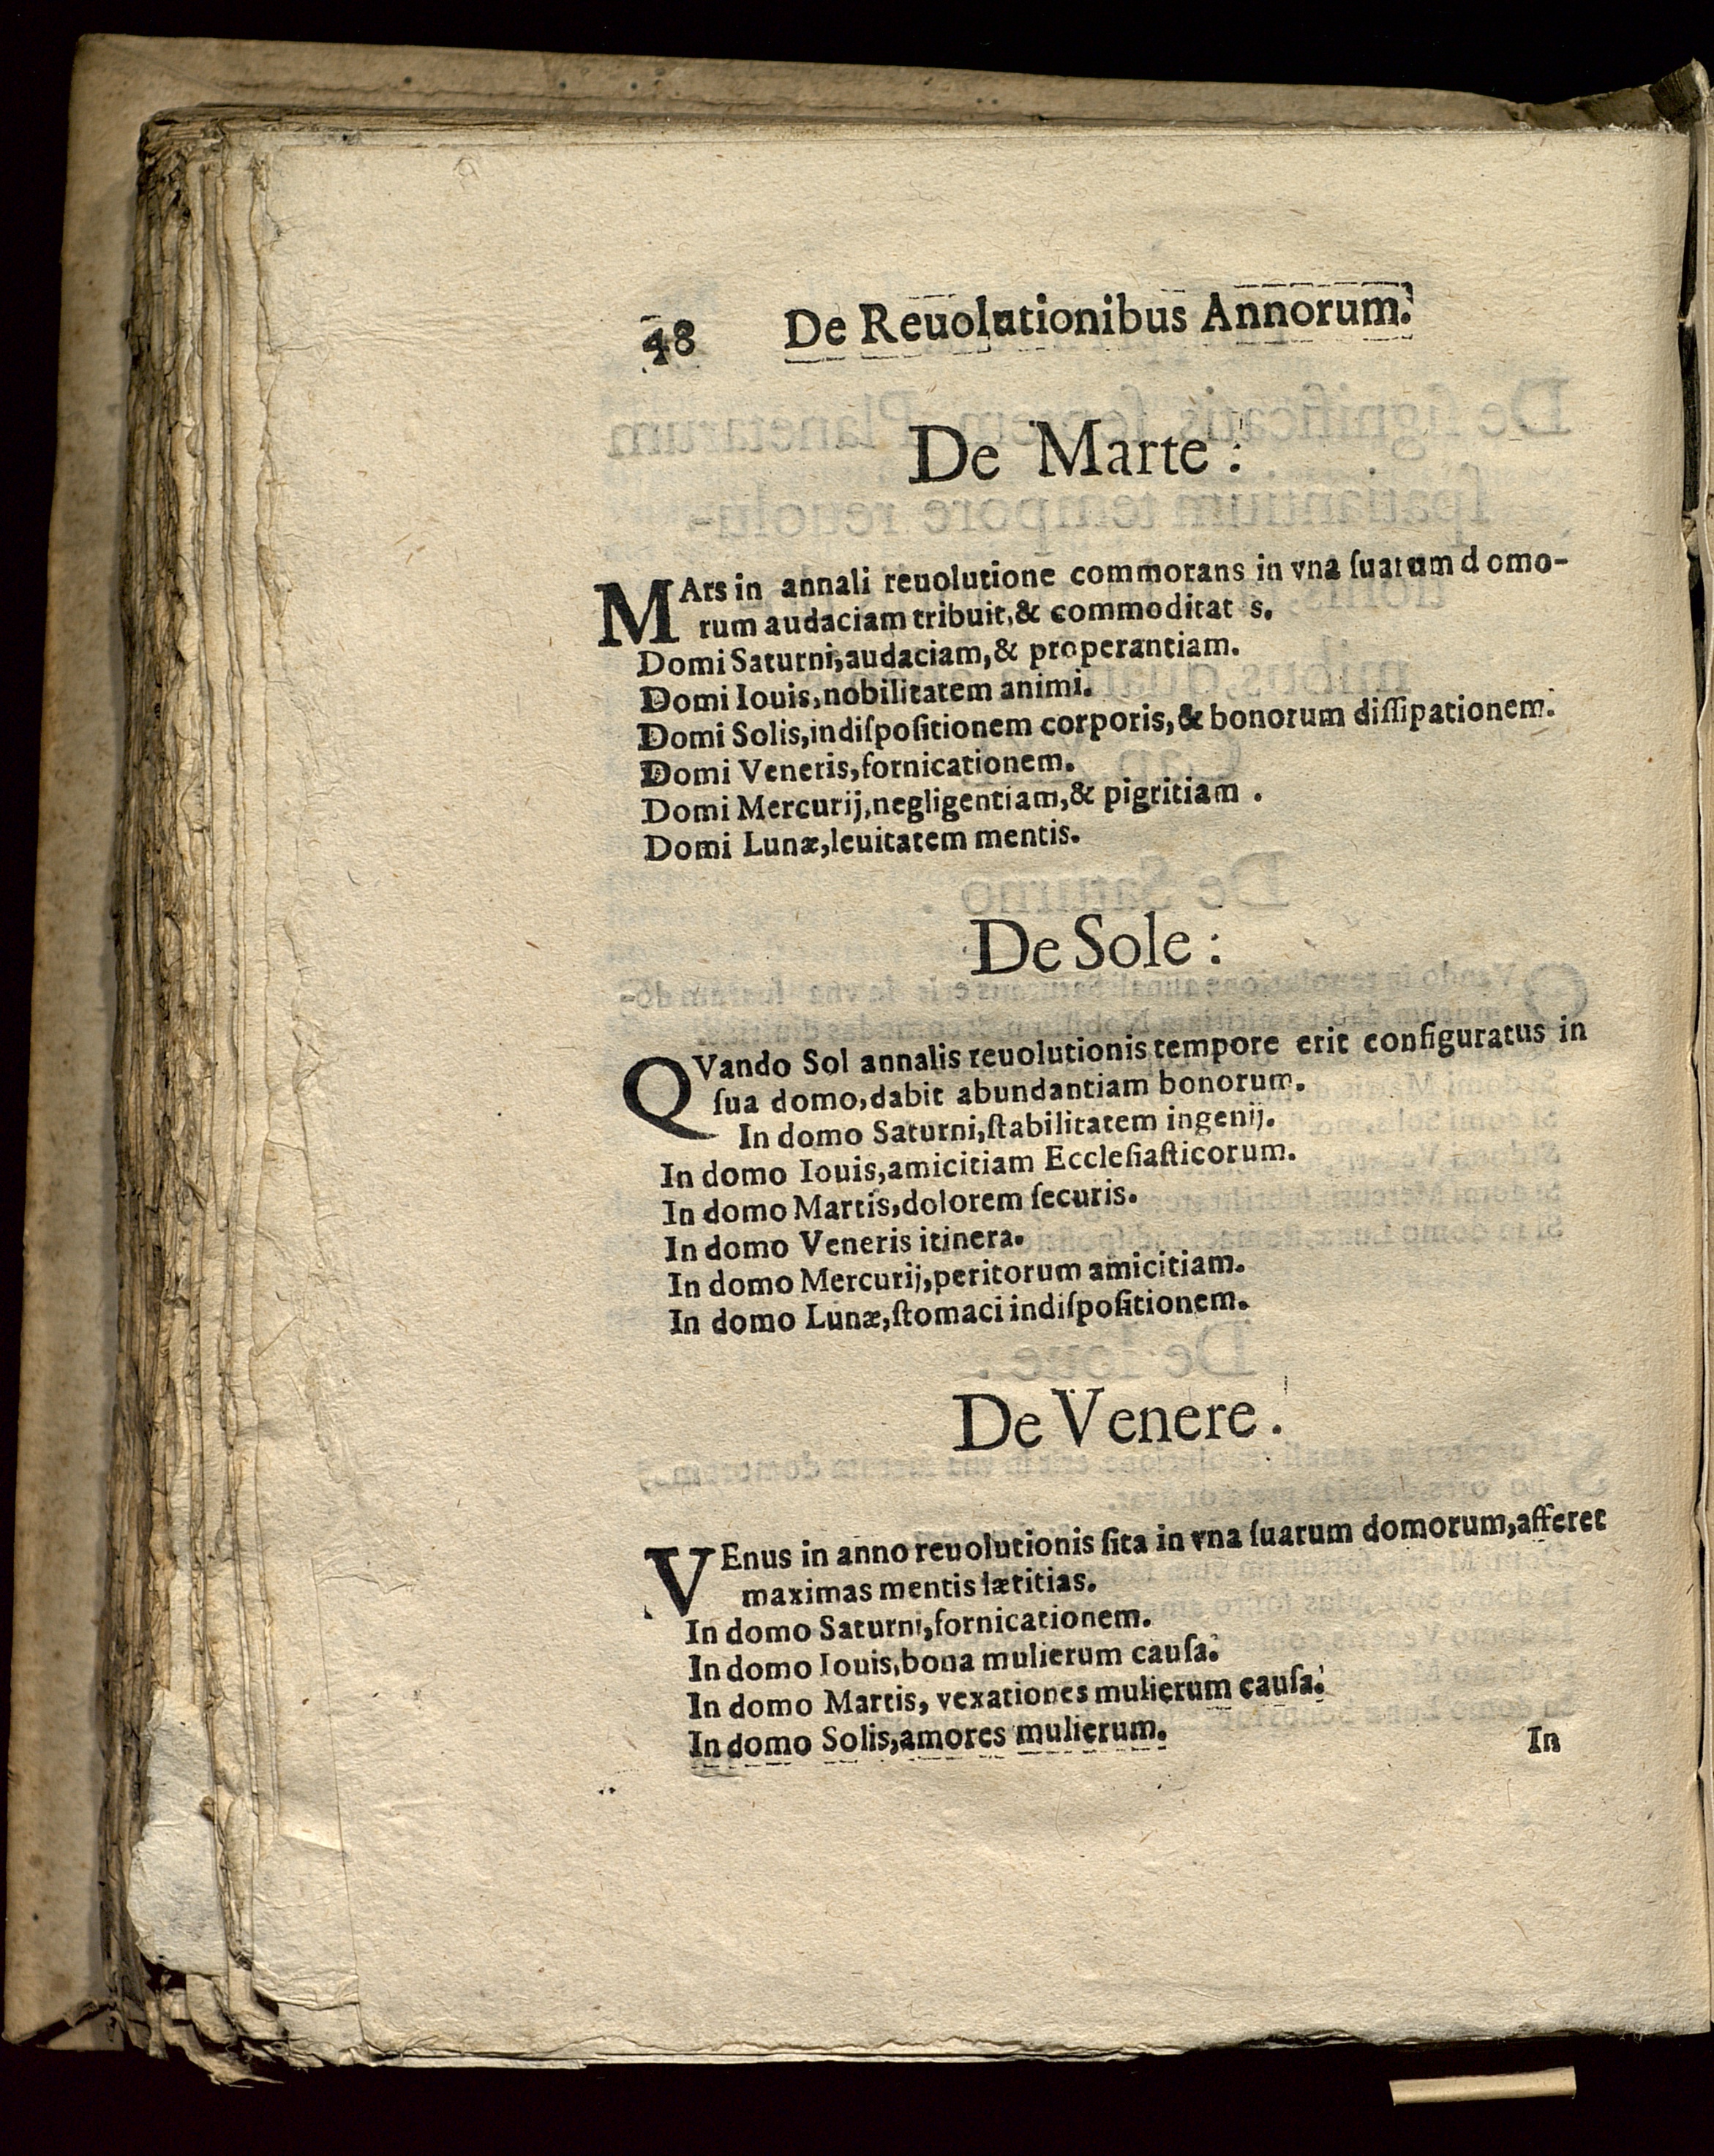 48 De Reuolutionibus Annorum.
De Marte:
MArs in annali reuolutione commorans in vna ſuarum domo-
rum audaciam tribuit,& commoditat s.
Domi Saturni,audaciam,& properantiam.
Domi Iouis,nobilitatem animi.
Domi Solis,indiſpoſitionem corporis,& bonorum diſſipationem.
Domi Veneris,fornicationem.
Domi Mercurij,negligentiam,& pigritiam .
Domi Lunæ,leuitatem mentis.
De Sole:
QVando Sol annalis reuolutionis tempore erit configuratus in
ſua domo,dabit abundantiam bonorum.
In domo Saturni,ſtabilitatem ingenij.
In domo Iouis,amicitiam Eccleſiaſticorum.
In domo Martis,dolorem ſecuris.
In domo Veneris itinera.
In domo Mercurij,peritorum amicitiam.
In domo Lunæ,ſtomaci indiſpoſitionem.
De Venere.
VEnus in anno reuolutionis ſita in vna ſuarum domorum,afferet
maximas mentis lætitias.
In domo Saturni,fornicationem.
In domo Iouis,bona mulierum cauſa.
In domo Martis, vexationes mulierum cauſa.
In domo Solis,amores mulierum.
In